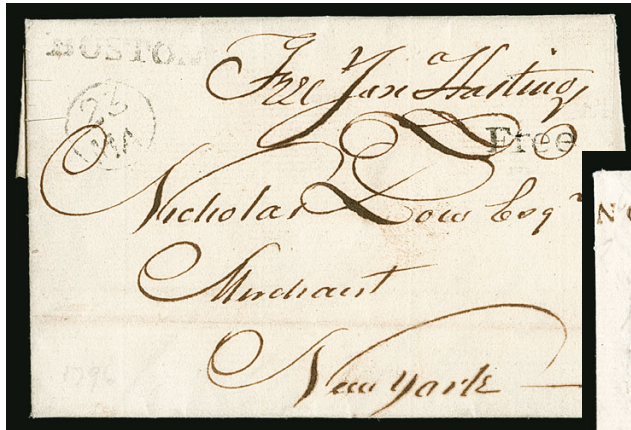 BOSTON
Free Jon Hastings
25
MA
Free
Nicholas Low Esqr
Merchant
New York
1796
N